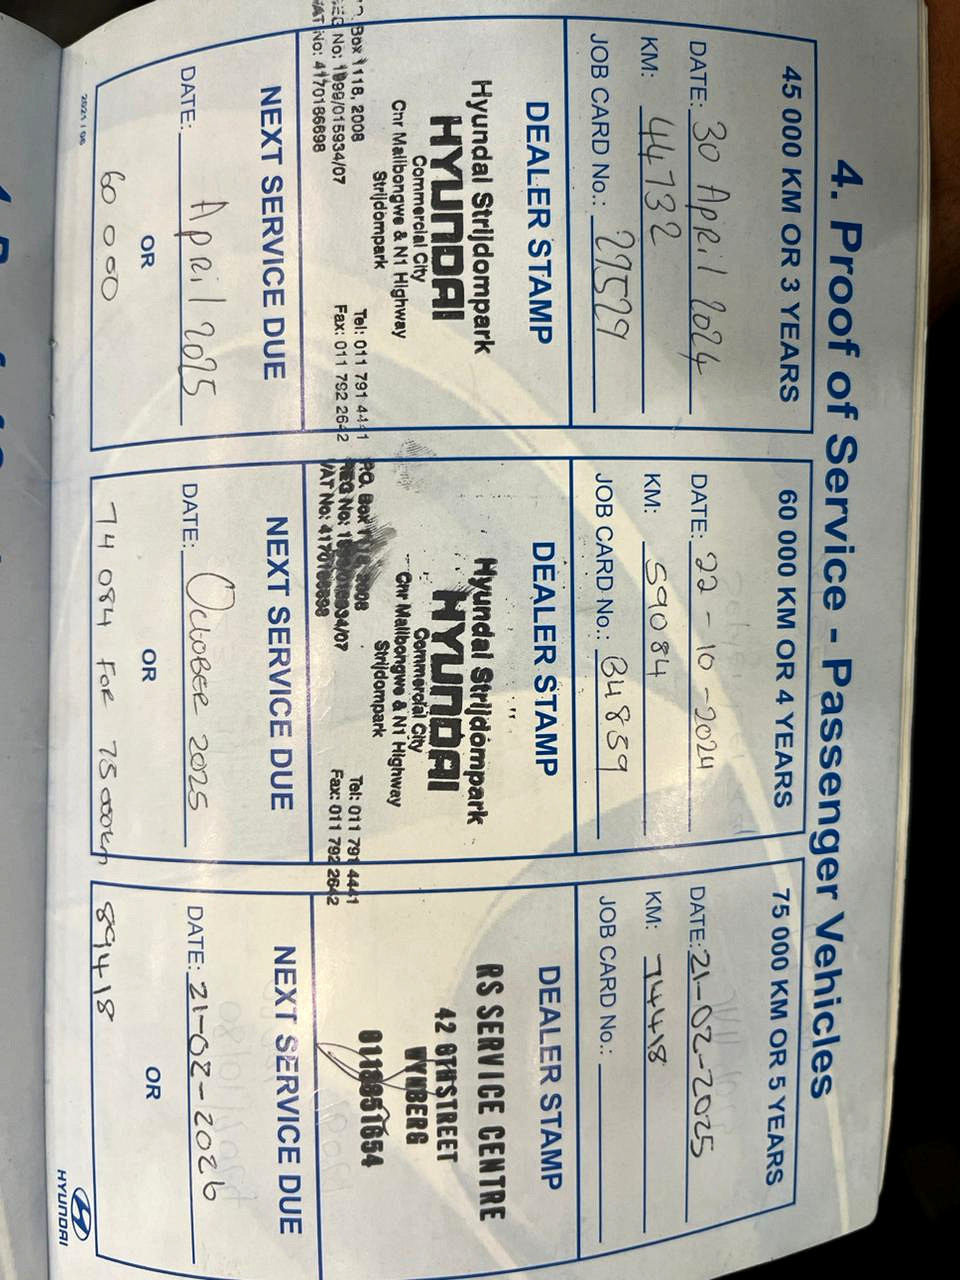 4. Proof of Service - Passenger Vehicles
45 000 KM OR 3 YEARS
DATE: 30 April 2024
KM: 44732
JOB CARD No.: 29529
DEALER STAMP
Hyundai Strijdompark
HYUNDAI
Commercial City
Cnr Malibongwe & N1 Highway
Strijdompark
Box 1118, 2008
Tel: 011 791 4441
No: 1999/015934/07
Fax: 011 792 2642
VAT No: 4170186698
NEXT SERVICE DUE
DATE: April 2025
OR
60 000
60 000 KM OR 4 YEARS
DATE: 22-10-2024
KM: 59084
JOB CARD No.: B4859
DEALER STAMP
Hyundai Strijdompark
HYUNDAI
Commercial City
Cnr Malibongwe & N1 Highway
Strijdompark
P.O. Box 2008
Tel: 011 791 4441
REG No:
Fax: 011 792 2642
VAT No:
NEXT SERVICE DUE
DATE: October 2025
OR
74 084 For 75 000km
75 000 KM OR 5 YEARS
DATE: 21-02-2025
KM: 74418
JOB CARD No.:
DEALER STAMP
RS SERVICE CENTRE
42 6TH STREET
WYNBERG
0118851654
NEXT SERVICE DUE
DATE: 21-02-2026
OR
89418
2021 / 06
HYUNDAI